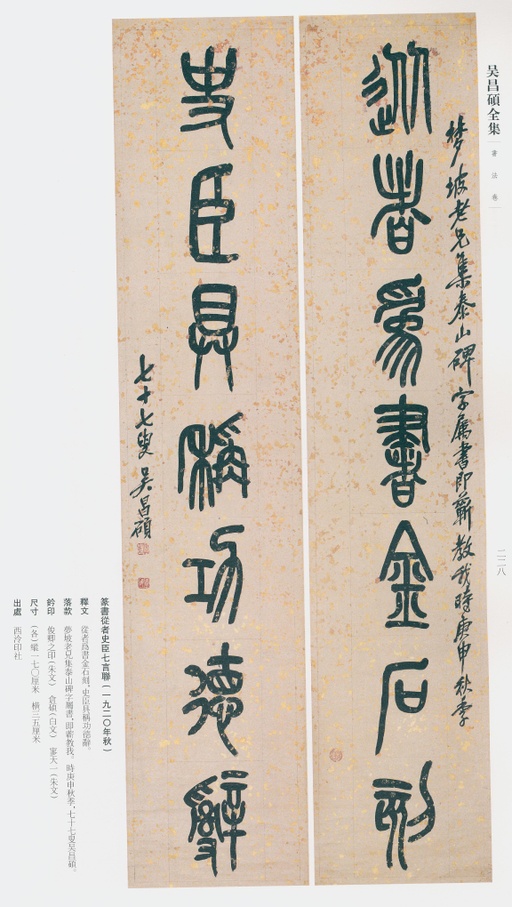 吴昌碩全集
書法卷
夢坡老兄集泰山碑字属書即蘄教我時庚申秋季
從者爲書金石刻
史臣具稱功德辭
七十七叟吴昌碩
二二八
篆書從者史臣七言聯(一九二〇年秋)
釋文 從者爲書金石刻,史臣具稱功德辭。
落款 夢坡老兄集泰山碑字屬書,即蘄教我。時庚申秋季,七十七叟吴昌碩。
鈐印 俊卿之印(朱文) 倉碩(白文) 寥天一(朱文)
尺寸 (各)縱一七〇厘米 橫三五厘米
出處 西泠印社